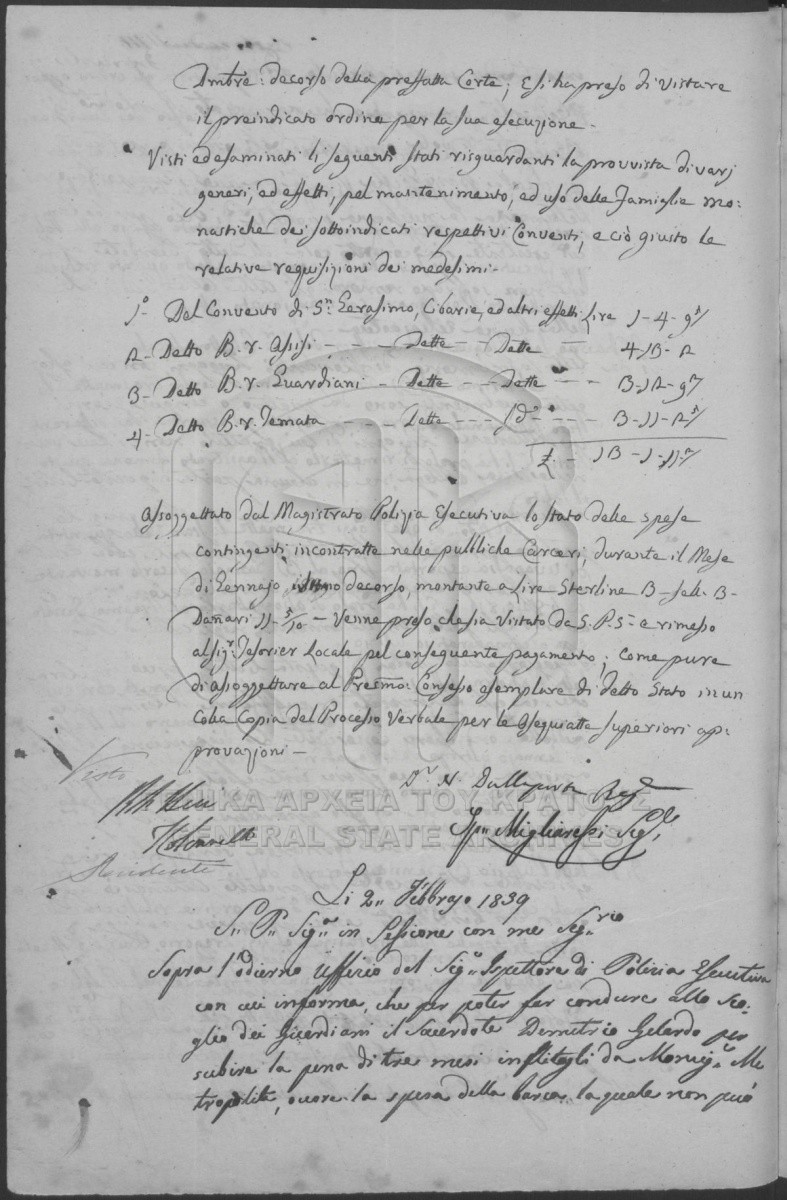 Dmbre: decorso della prefatta Corte; e si ha preso di Vistare
il preindicato ordine per la sua esecuzione.
Visti ed esaminati li seguenti stati risguardanti la provvista di varj
generi, ed effetti, pel mantenimento, ed uso delle Famiglie mo:
nastiche dei sottoindicati respettivi Conventi, e ciò giusto le
relative requisizioni dei medesimi.
1°- Del Convento di Sn Gerasimo, Cibarie, ed altri effetti Lire 1-4-9
2- Detto B.V. Assisi - - - Dette - - Dette - 4-13-2
3- Detto B.V. Guardiani - Dette - - Dette - 3-12-9
4- Detto B.V. Temata - - - Dette - - - 3-11-2
£. - 13-1-11
Assoggettato dal Magistrato Polizia Esecutiva lo stato delle spese
contingenti incontratte nelle pubbliche Carceri, durante il Mese
di Gennajo decorso, montante a Lire Sterline 3- sell. 3-
Danari 11. 5/10 - Venne preso che sia Vistato da S.P.S. e rimesso
al sigr: Tesorier Locale pel conseguente pagamento; come pure
di assoggettare al Presmo: Consesso esemplare di detto Stato in un
colla Copia del Processo Verbale per le assequiatte superiori ap:
provazioni -
Visto
Dr N. Dallaporta Regte
Migliaressi Segrio
Residente
Li 2" Febbrajo 1839
S." P." Sigri in Sessione con me Segrio
Sopra l'odierno Uffizio del Sigr Ispettore di Polizia Esecutiva
con cui informa, che per poter far condure allo Sco:
glio dei Guardiani il Sacerdote Demetrio Gelardo per
subire la pena di tre mesi inflittagli da Monsigr Me
tropolita, occore la spesa della barca la quale non può
ΓΕΝΙΚΑ ΑΡΧΕΙΑ ΤΟΥ ΚΡΑΤΟΥΣ
GENERAL STATE ARCHIVES